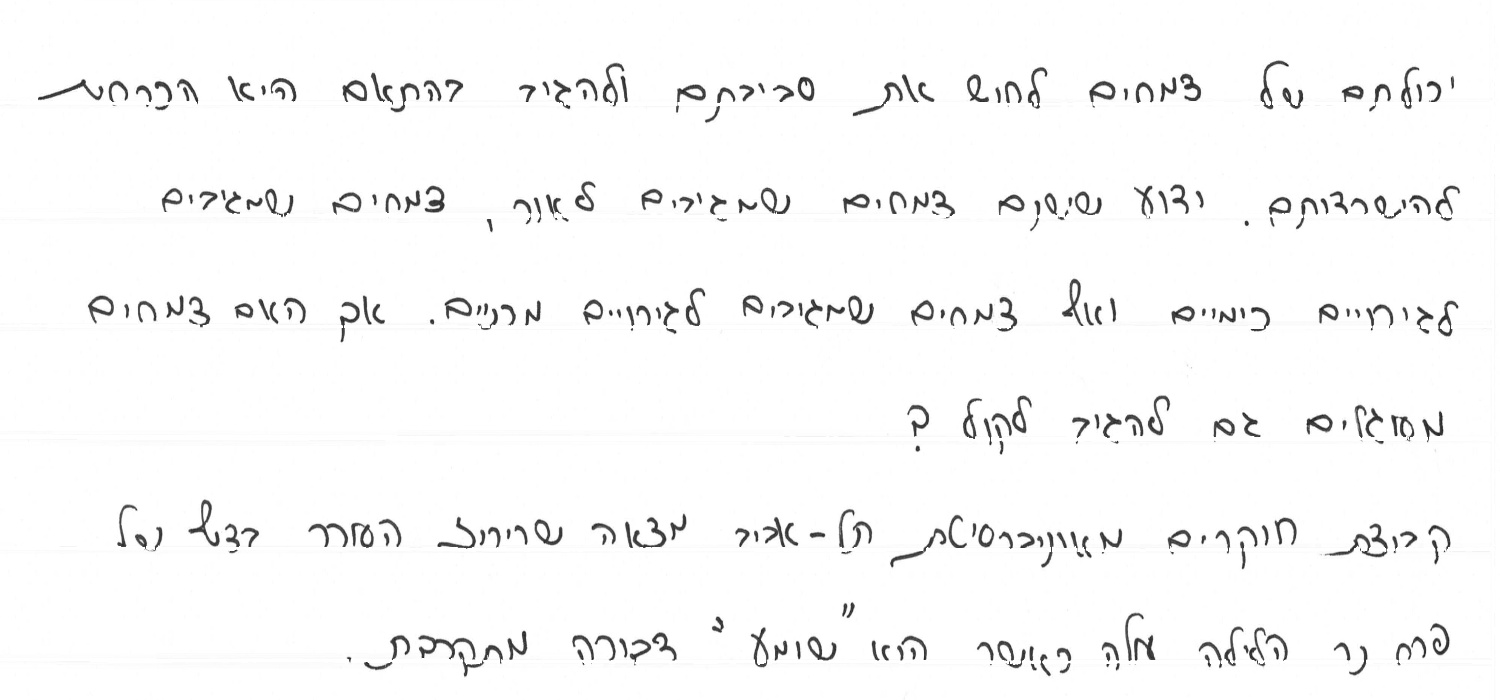 יכולתם של צמחים לחוש את סביבתם ולהגיב בהתאם היא הכרחית
להישרדותם. ידוע שישנם צמחים שמגיבים לאור, צמחים שמגיבים
לגירויים כימיים ואף צמחים שמגיבים לגירויים מכניים. אך האם צמחים
מסוגלים גם להגיב לקול?
קבוצת חוקרים מאוניברסיטת תל-אביב מצאה שריכוז הסוכר בצוף של
פרח נר הלילה עלה כאשר הוא "שומע" דבורה מתקרבת.